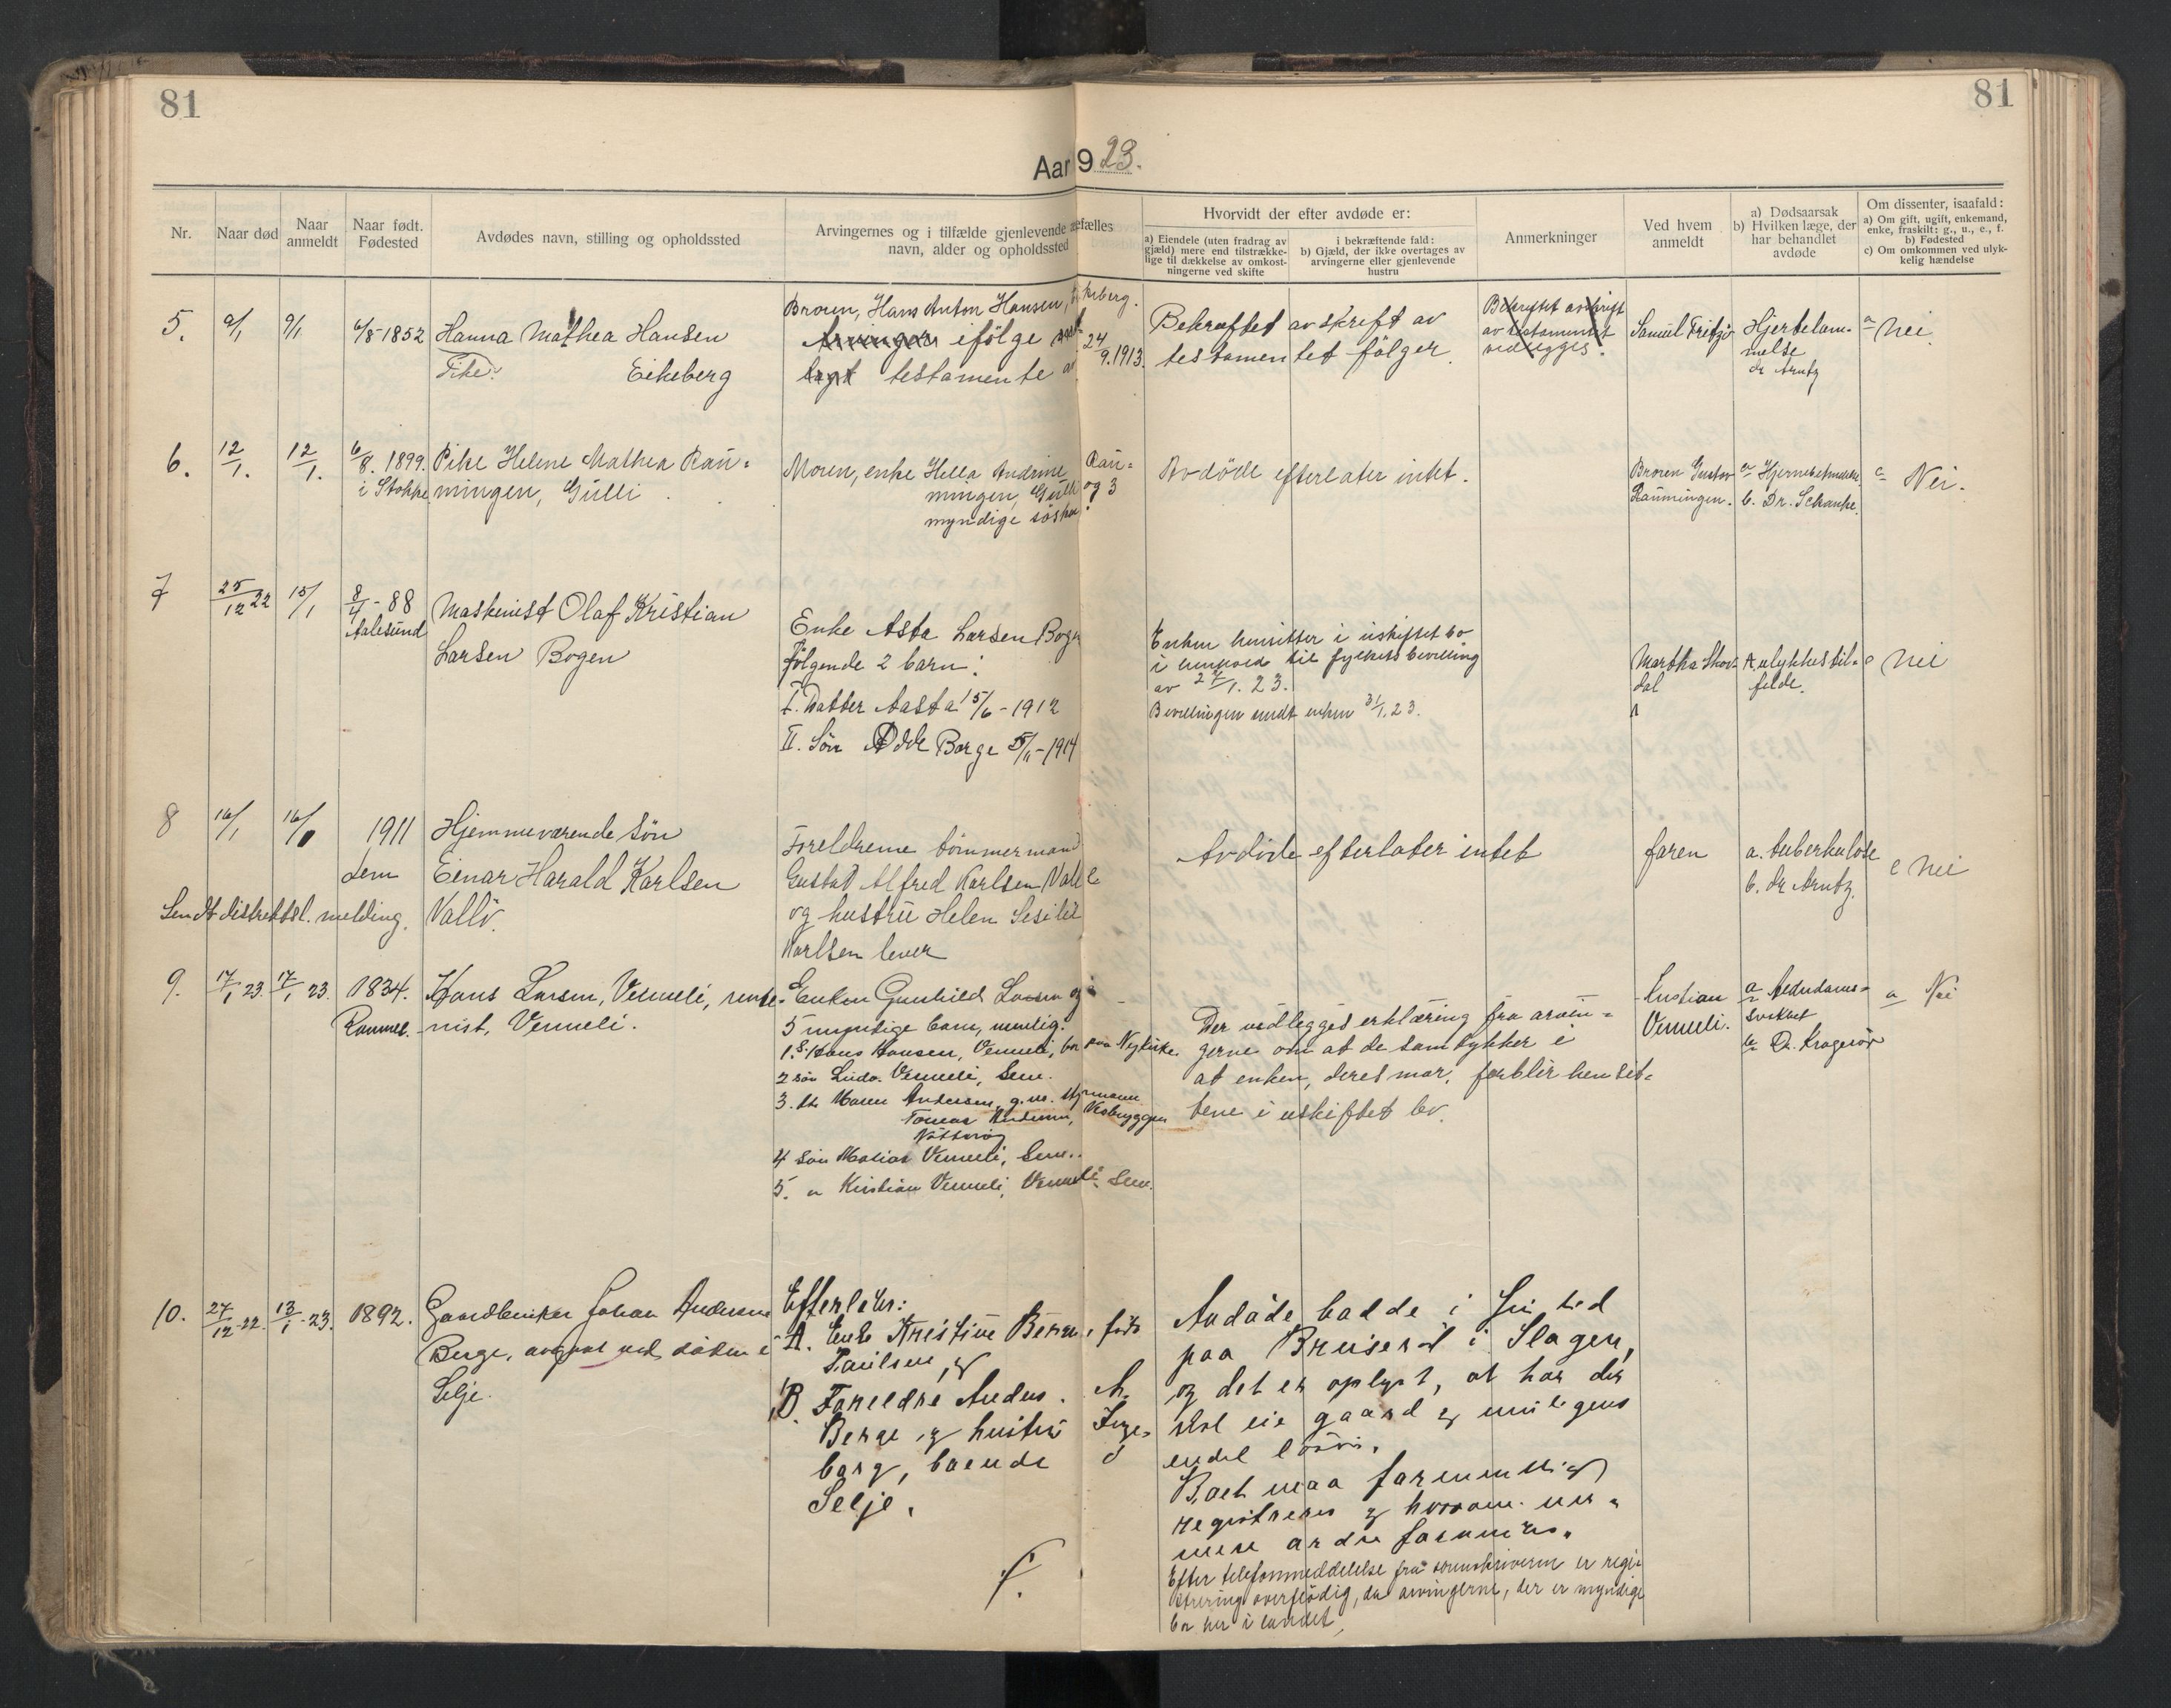 81
81
Aar 1923.
Nr.
Naar død
Naar anmeldt
Naar født. Fødested
Avdødes navn, stilling og opholdssted
Arvingernes og i tilfælde gjenlevende ægtefælles
navn, alder og opholdssted
Hvorvidt der efter avdøde er:
a) Eiendele (uten fradrag av
gjæld) mere end tilstrække-
lige til dækkelse av omkost-
ningerne ved skifte
i bekræftende fald:
b) Gjæld, der ikke overtages av
arvingerne eller gjenlevende
hustru
Anmerkninger
Ved hvem
anmeldt
a) Dødsaarsak
b) Hvilken læge, der
har behandlet
avdøde
Om dissenter, isaafald:
a) Om gift, ugift, enkemand,
enke, fraskilt: g., u., e., f.
b) Fødested
c) Om omkommen ved ulyk-
kelig hændelse
5.
9/1
9/1
6/8-1852
Hanna Mathea Hansen
Pike. Eikeberg
Broren, Hans Anton Hansen, Eikeberg.
Arvinger ifölge
testamente av 24/9.1913.
Bekræftet avskrift av
testamentet fölger.
Bekræftet avskrift
av testamentet
vedlegges.
Samuel Fritzö
Hjertelam-
melse
dr Arntz
Nei.
6.
12/1.
12/1.
6/8. 1899.
i Stokke
Pike Helene Mathea Rau-
mingen, Gulli
Moren, enke Hella Andrine Rau-
mingen, Gulli og 3
myndige søsken.
Avdöde efterlater intet.
Broren Gustav
Raumingen.
a. Hjernebetændelse
b. Dr. Schanke.
c Nei.
7
25/12 22
15/1
8/4-88
Aalesund
Maskinist Olaf Kristian
Larsen Bogen
Enke Asta Larsen Bogen
følgende 2 barn:
I. Datter Aasta 15/6-1912
II. Sön Odd Borge 5/11-1914
Enken hensitter i uskiftet bo
i henhold til fylkets bevilling
av 27/1.23.
Bevillingen sendt enken 31/1.23.
Martha Skov-
dal
A ulykkestil-
felde.
c Nei
8
16/1
16/1
1911
Sem
Hjemmeværende sön
Einar Harald Karlsen
Vallö.
Sendt distriktsl. melding.
Foreldrene tömmermand
Gustav Alfred Karlsen Vallö
og hustru Helen Sesilie
Karlsen lever
Avdöde efterlater intet
faren
a. tuberkulose
b. dr Arntz.
c Nei
9.
17/1 23.
17/1 23.
1834.
Ramnes.
Hans Larsen, Vemeli, rente-
nist, Vemeli.
Enken Gunhild Larsen og
5 myndige barn, nemlig:
1. S. Hans Hansen, Vemeli, bor paa Nykirke
2 sön Ludv. Vemeli, Sem.
3. dt. Maren Andersen, g.m. styrmann
Tomas Andersen, Vestbryggen
Nötterøy
4 sön Matias Vemeli, Sem.
5. " Kristian Vemeli, Vemeli, Sem.
Der vedlegges erklæring fra arvin-
gerne om at de samtykker i
at enken, deres mor, forblir hensit-
tene i uskiftet bo.
Kristian
Vemeli.
a Alderdoms-
svakhet
b Dr. Kragerör
a Nei
10.
27/12-22.
13/1-23.
1892.
Gaardbruker Johan Andersen
Berge, avgaat ved döden i
Selje.
Efterlater:
A. Enke Kristine Berge, föd
Paulsen, og
B. Foreldre Anders M.
Berge og hustru Inge-
borg, boende i
Selje.
Avdöde hadde i sin tid
paa Bruseröd i Slagen,
og det er oplyst, at han der
skal eie gaard og muligens
endel lösöre.
Boet maa formentlig
registreres og hvorom nær-
mere ordre forventes.
Efter telefonmeddelelse fra sorenskriveren er regi-
strering overflödig, da arvingerne, der er myndige
bor her i landet.